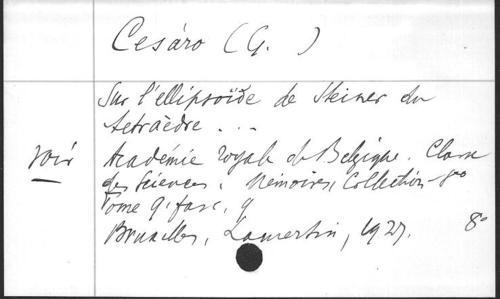 Cesáro (G. )
Sur l'ellipsoïde de Steiner du
tétraèdre . . .
voir Académie royale de Belgique. Classe
des Sciences. Mémoires, Collection - 8°
Tome 9, fasc. 9
Bruxelles, Lamertin, 1927. 8°